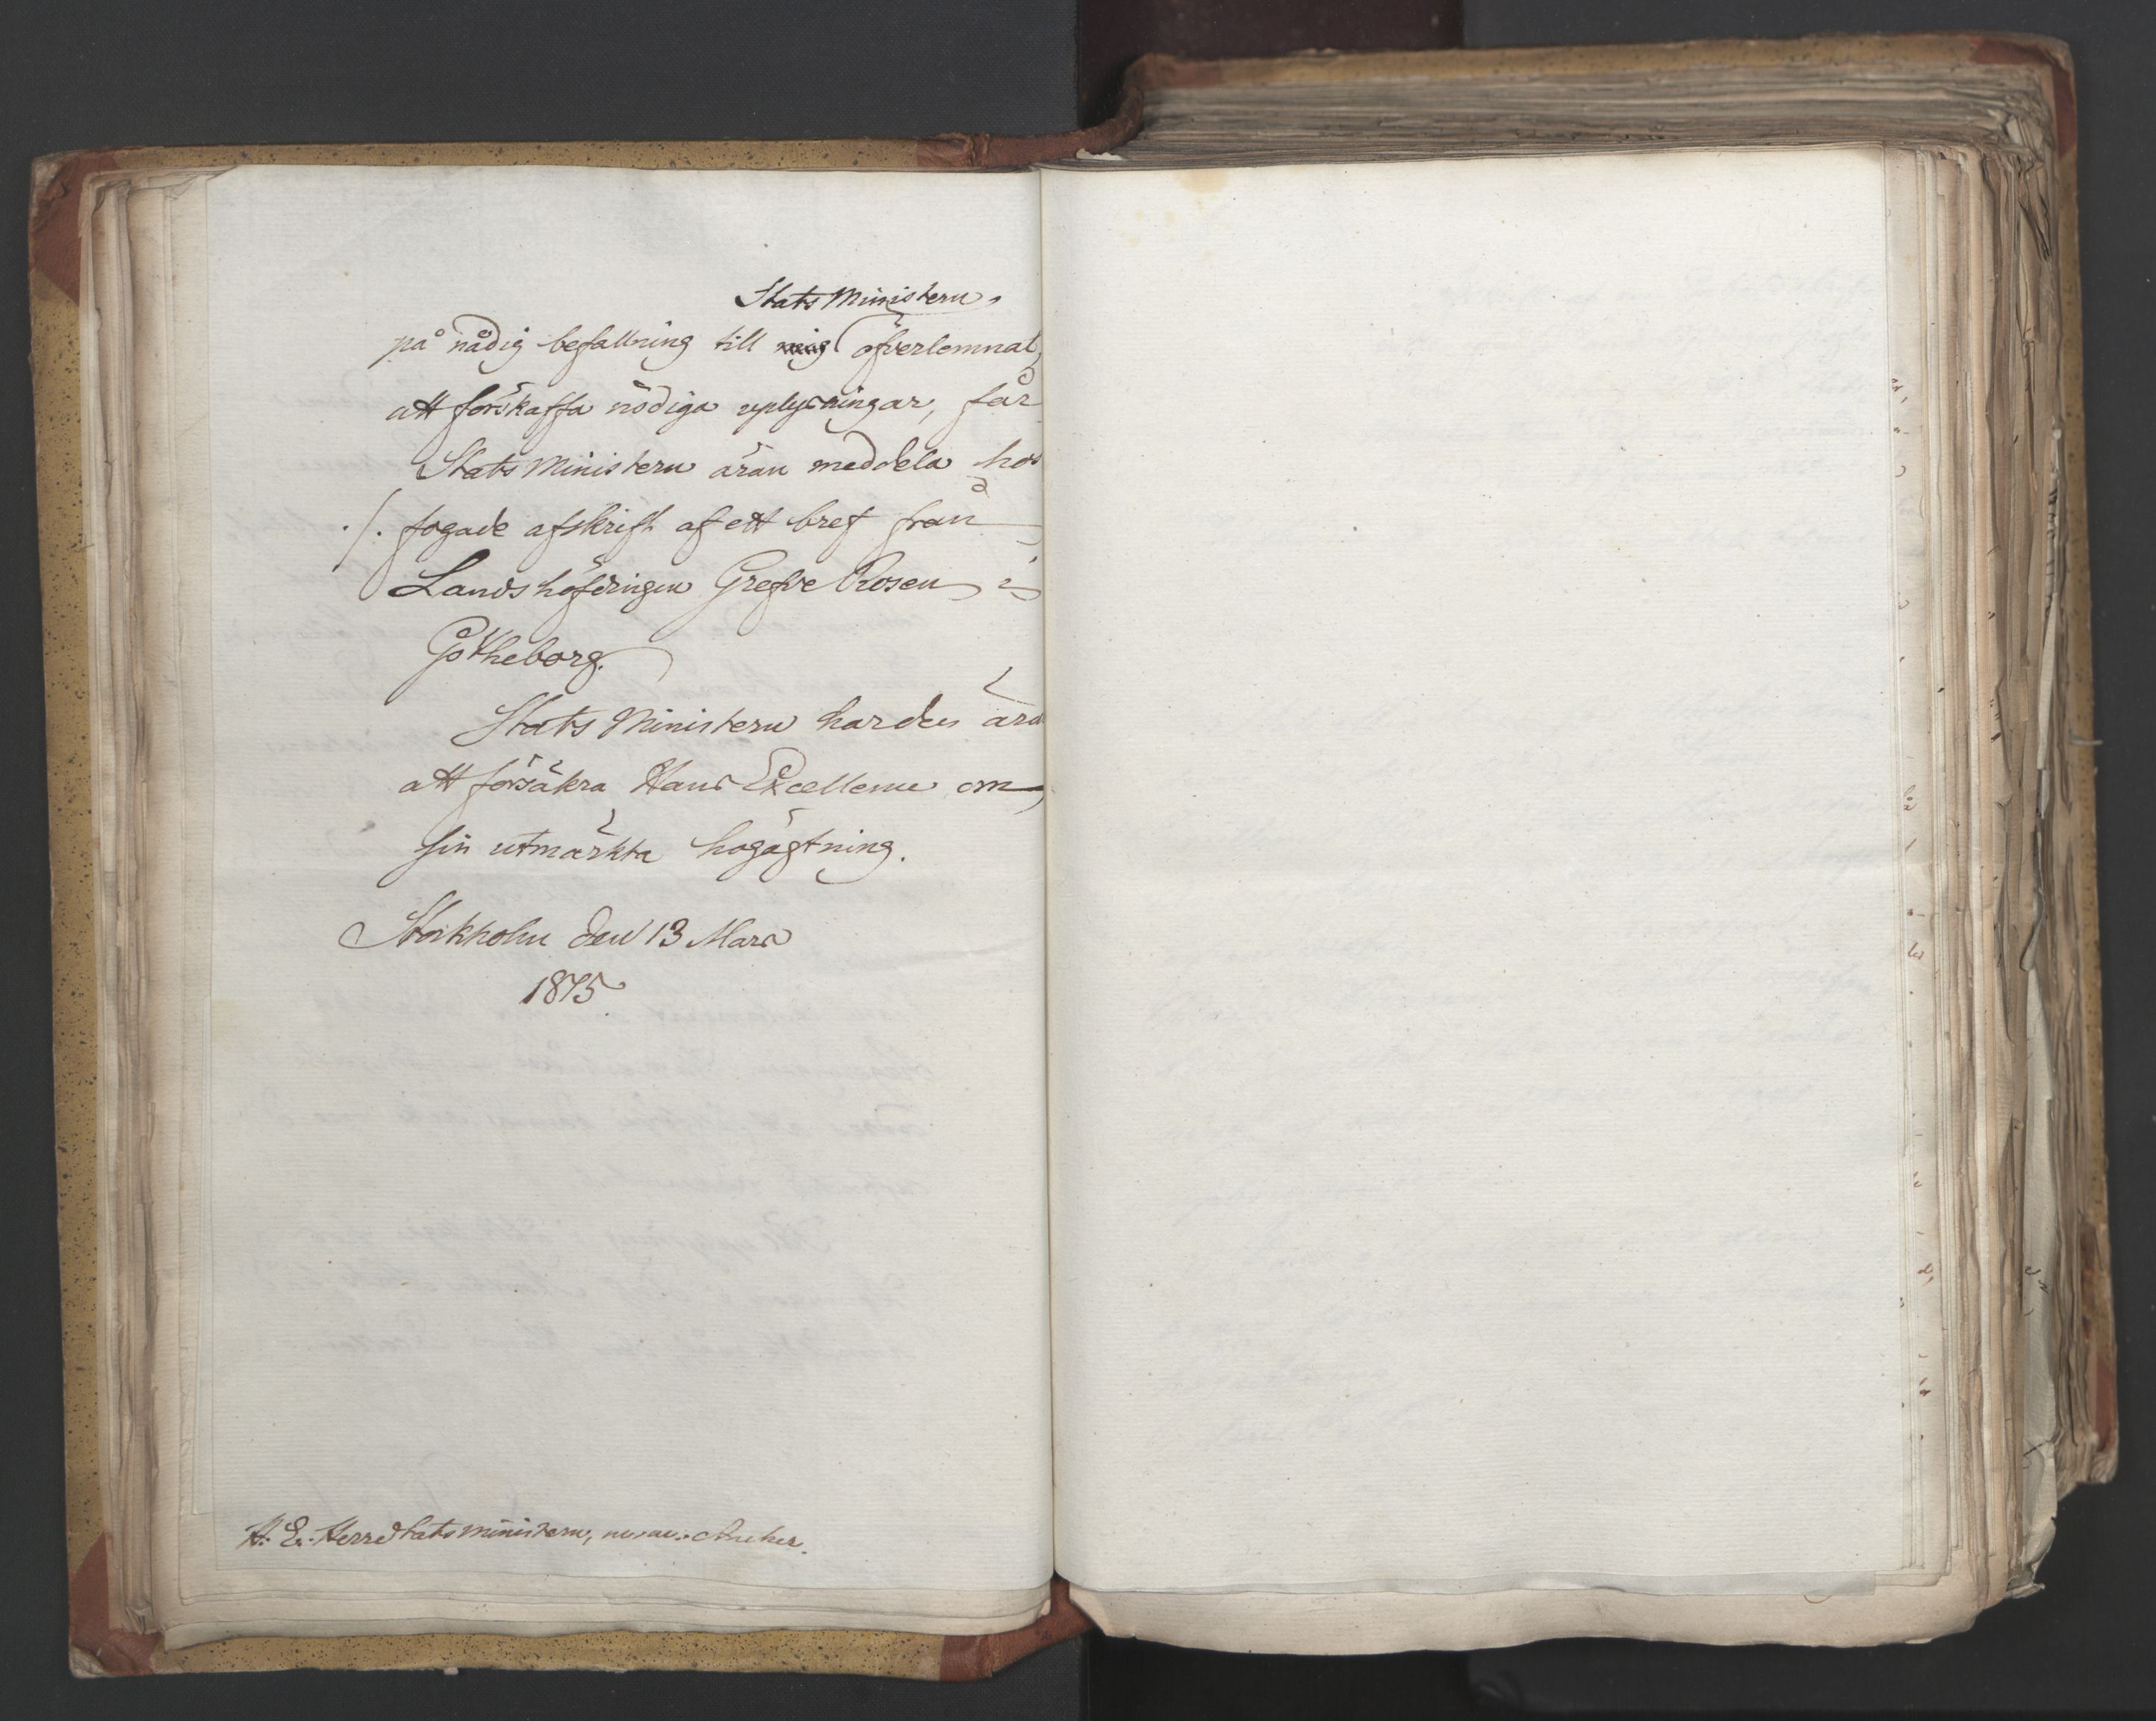 Stats Ministern
på nådig befallning till mig öfverlemnat,
att förskaffa nödiga uplysningar, får
Stats Ministern äran meddela hos
./. fogade afskrift af ett bref från
Landshöfdingen Grefve Rosen i
Götheborg.
Stats Ministern har den ära
att försäkra Hans Excellence om
sin utmärkta högagtning.
Stockholm den 13 Mars
1815
H. E. Herr Stats Ministern, m.m. Ancker.